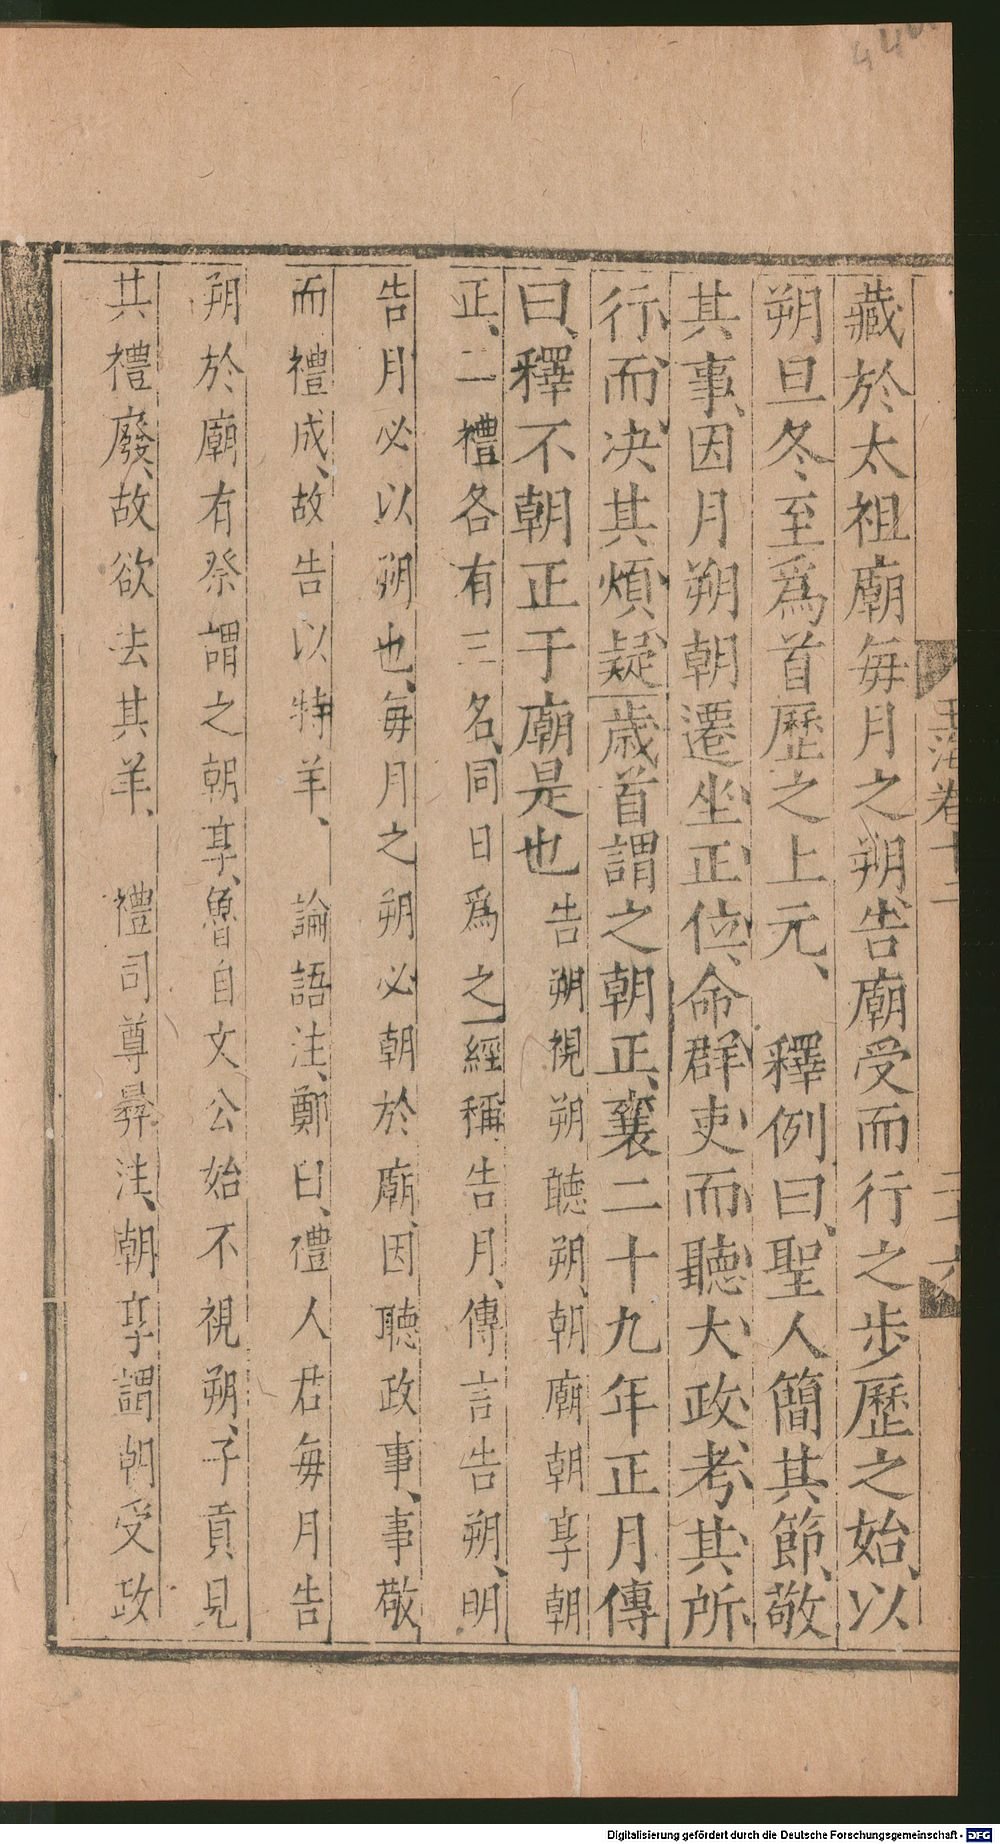 藏於太祖廟毎月之朔、告廟受而行之步歷之始、以
朔旦冬至爲首歷之上元、 釋例曰、聖人簡其節、敬
其事、因月朔朝遷坐、正位、命群吏、而聽、大政、考、其所
行、而、决其煩疑歲首謂之朝正、襄二十九年正月傳
曰、釋不朝正于廟是也 告朔視朔聽朔、朝廟朝享朝
正、二禮各有三名、同日爲之經稱告月、傳言告朔、明
告月必以朔也、毎月之朔必朝於廟、因聽政事、事敬
而禮成、故告以特羊、 論語注、鄭曰、禮人君每月告
朔於廟有祭謂之朝享、魯自文公始不視朔、子貢見
其禮廢、故欲去其羊、 禮司尊彛注、朝享謂朝受政
玉海卷十二
二十六
Digitalisierung gefördert durch die Deutsche Forschungsgemeinschaft - DFG